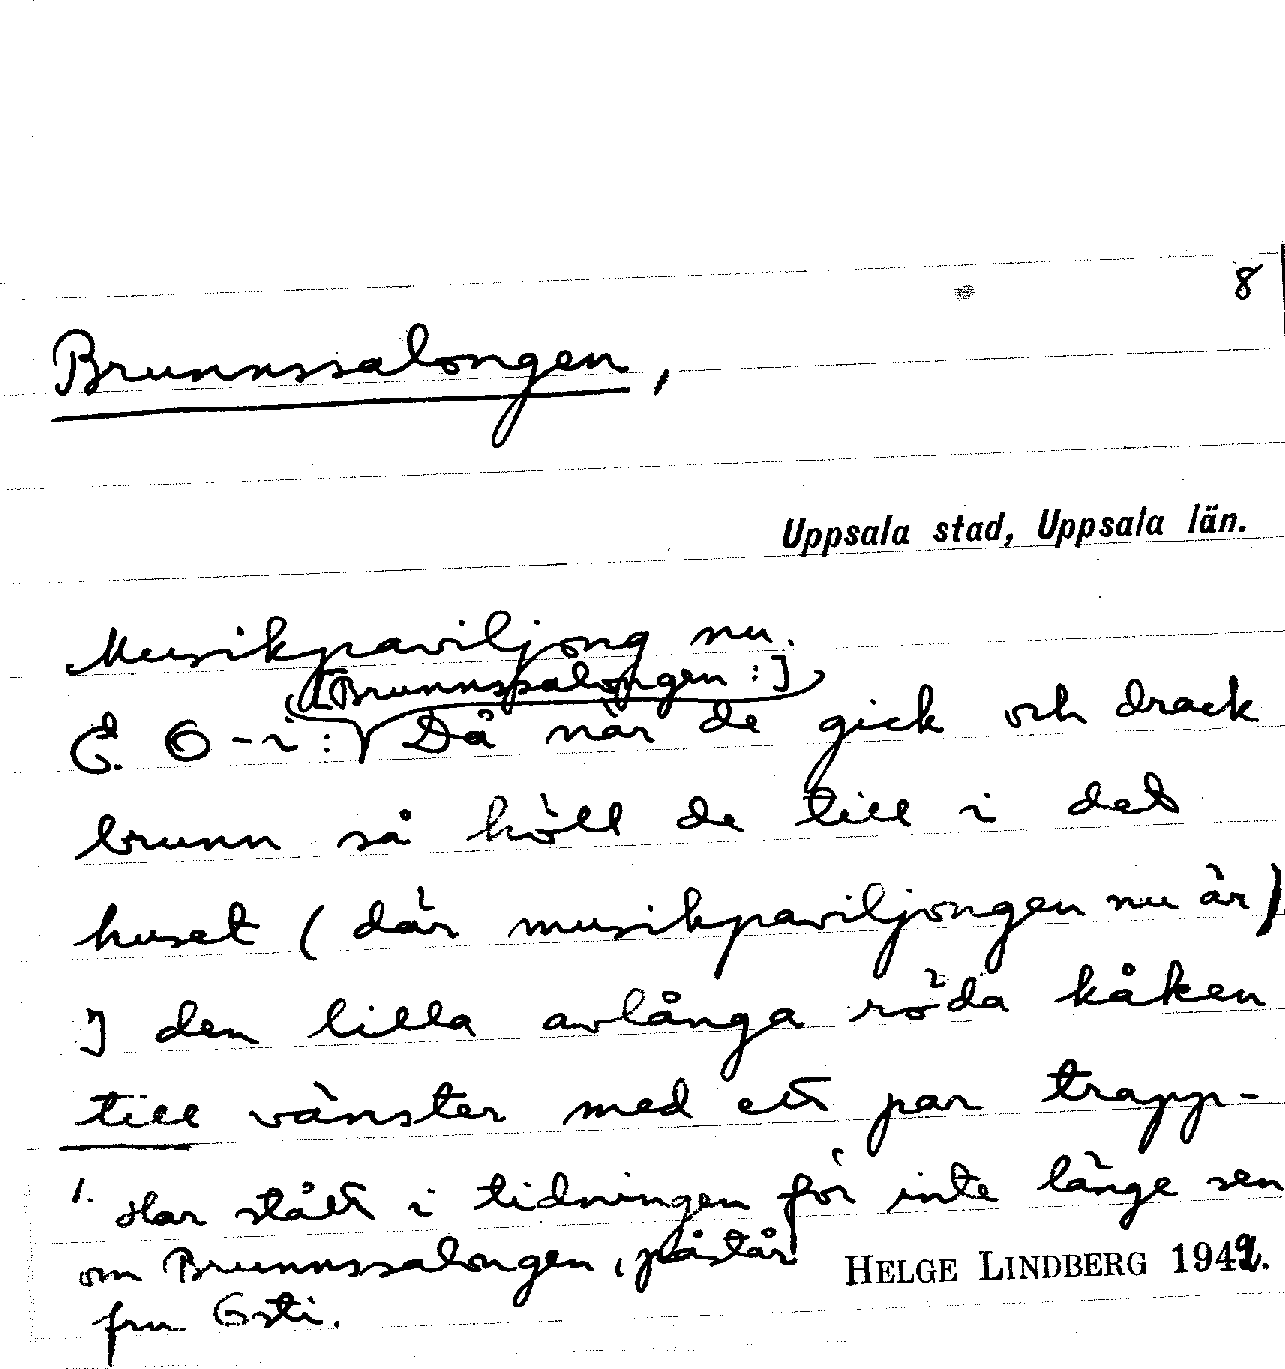 8
Brunnssalongen,
Uppsala stad, Uppsala län.
Musikpaviljong nu.
[Brunnssalongen:]
Då när de gick och drack
brunn så höll de till i det
huset (där musikpaviljongen nu är)
I den lilla avlånga röda kåken
till vänster med ett par trapp-
1. Har stått i tidningen för inte länge sen
om Brunnssalongen, påstår
fru Östi.
HELGE LINDBERG 1942.